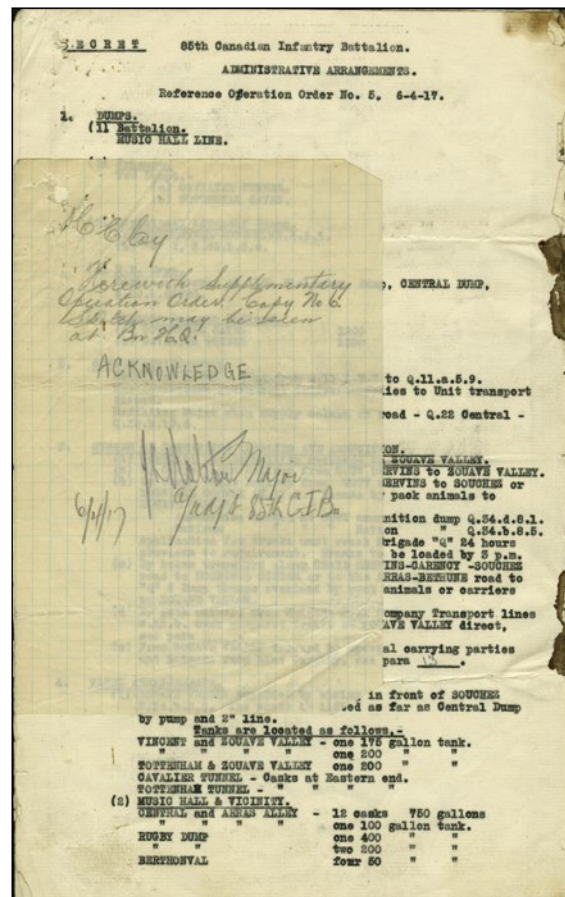 SECRET 85th Canadian Infantry Battalion.
ADMINISTRATIVE ARRANGEMENTS.
Reference Operation Order No. 5. 6-4-17.
1. DUMPS.
(1) Battalion.
MUSIC HALL LINE.
CENTRAL DUMP,
Herewith Supplementary
Operation Order. Copy No 6
Sketch may be seen
at Bn H.Q.
ACKNOWLEDGE
Major
a/adjt 85th C.I.B.
6/4/17
to Q.11.a.5.9.
ies to Unit transport
road - Q.22 Central -
ION.
ZOUAVE VALLEY.
ERVINS to ZOUAVE VALLEY.
SERVINS to SOUCHEZ or
pack animals to
nition dump Q.34.d.8.1.
on " Q.34.b.8.5.
rigade "Q" 24 hours
be loaded by 3 p.m.
INS-CARENCY -SOUCHEZ
RRAS-BETHUNE road to
animals or carriers
ompany Transport lines
AVE VALLEY direct,
al carrying parties
para 13.
in front of SOUCHEZ
ed as far as Central Dump
by pump and 2" line.
Tanks are located as follows.-
VINCENT and ZOUAVE VALLEY - one 175 gallon tank.
" " " " one 200 " "
TOTTENHAM & ZOUAVE VALLEY one 200 " "
CAVALIER TUNNEL - Casks at Eastern end.
TOTTENHAM TUNNEL - " " " "
(2) MUSIC HALL & VICINITY.
CENTRAL and ARRAS ALLEY - 12 casks 750 gallons
" " " " one 100 gallon tank.
RUGBY DUMP one 400 " "
" " two 200 " "
BERTHONVAL four 50 " "